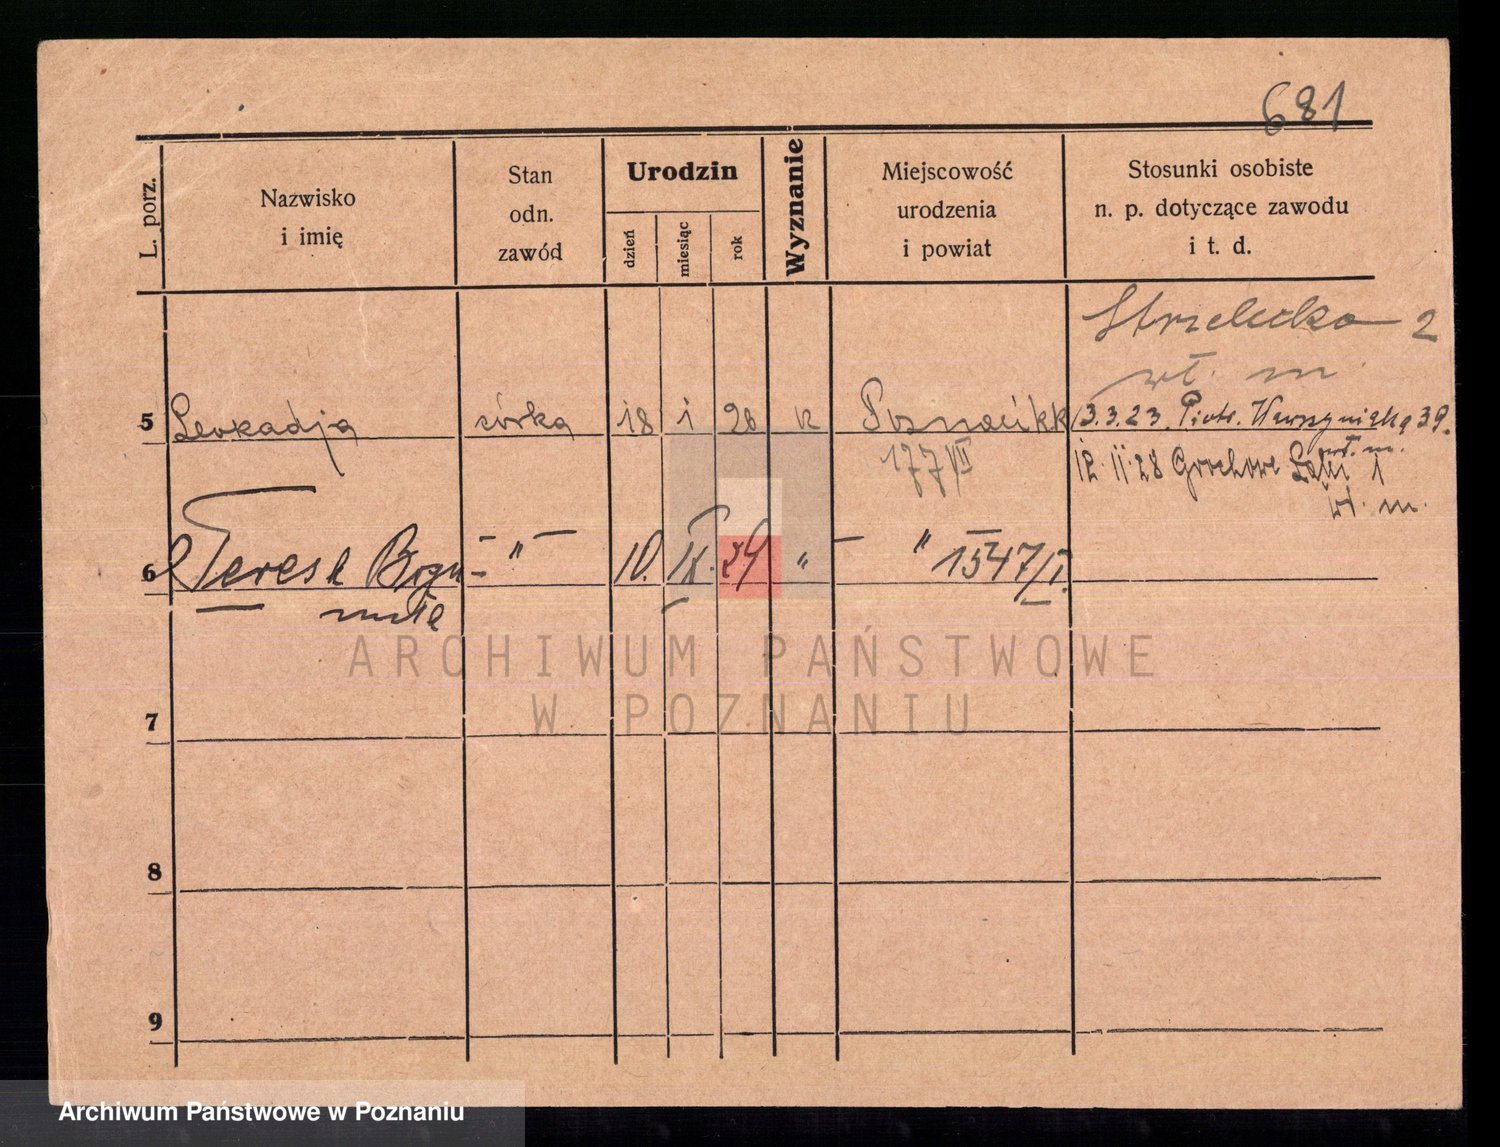 681
L. porz.
Nazwisko
i imię
Stan
odn.
zawód
Urodzin
dzień
miesiąc
rok
Wyznanie
Miejscowość
urodzenia
i powiat
Stosunki osobiste
n. p. dotyczące zawodu
i t. d.
Strzelecka 2
wł. m.
5 Leokadja córka 18 1 26 k Poznań 3.3.23. Piotr. Wawrzyniaka 39.
wł. m.
177/VI 12.11.28 Grochowe Łąki 1
wł. m.
6 Teresa Bogu - " - 10. IX. 29 " - " 1547/I.
miła
7
8
9
ARCHIWUM PAŃSTWOWE
W POZNANIU
Archiwum Państwowe w Poznaniu